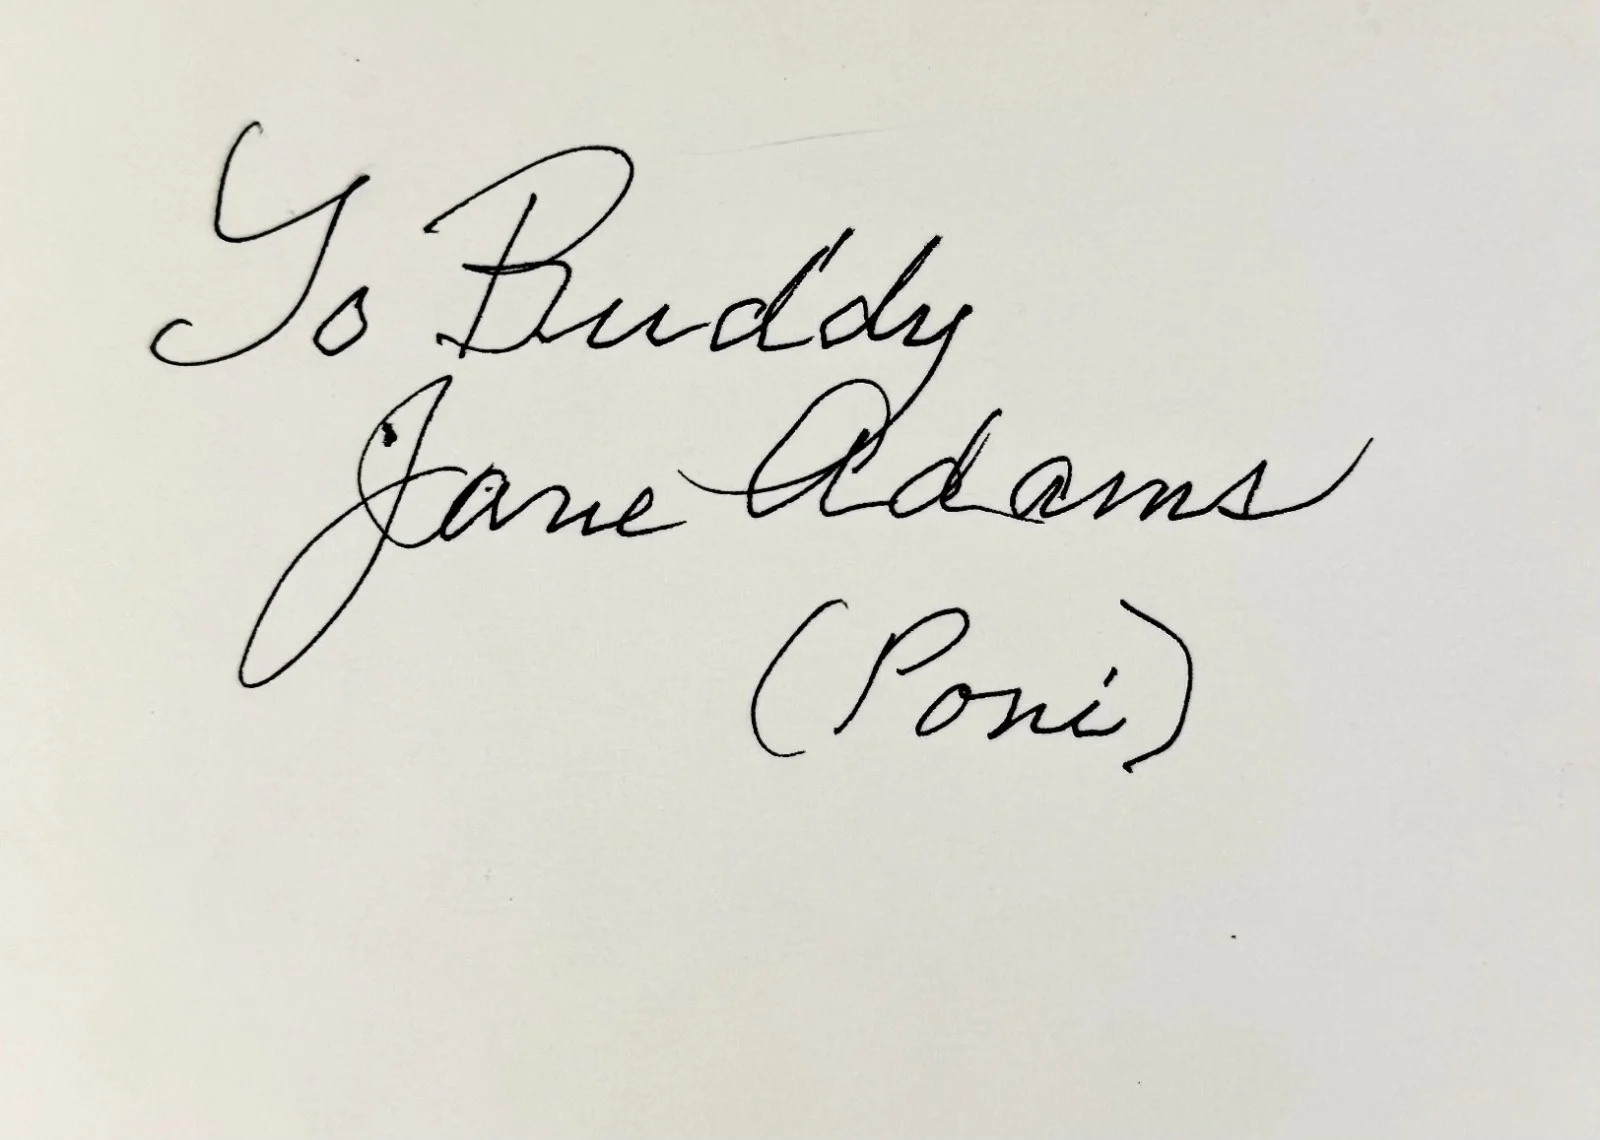 To Buddy
Jane Adams
(Poni)